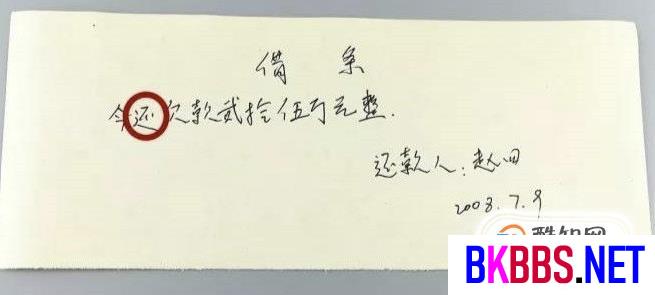 借条
今还欠款贰拾伍万元整.
还款人:赵四
2008.7.9
酷知网
BKBBS.NET